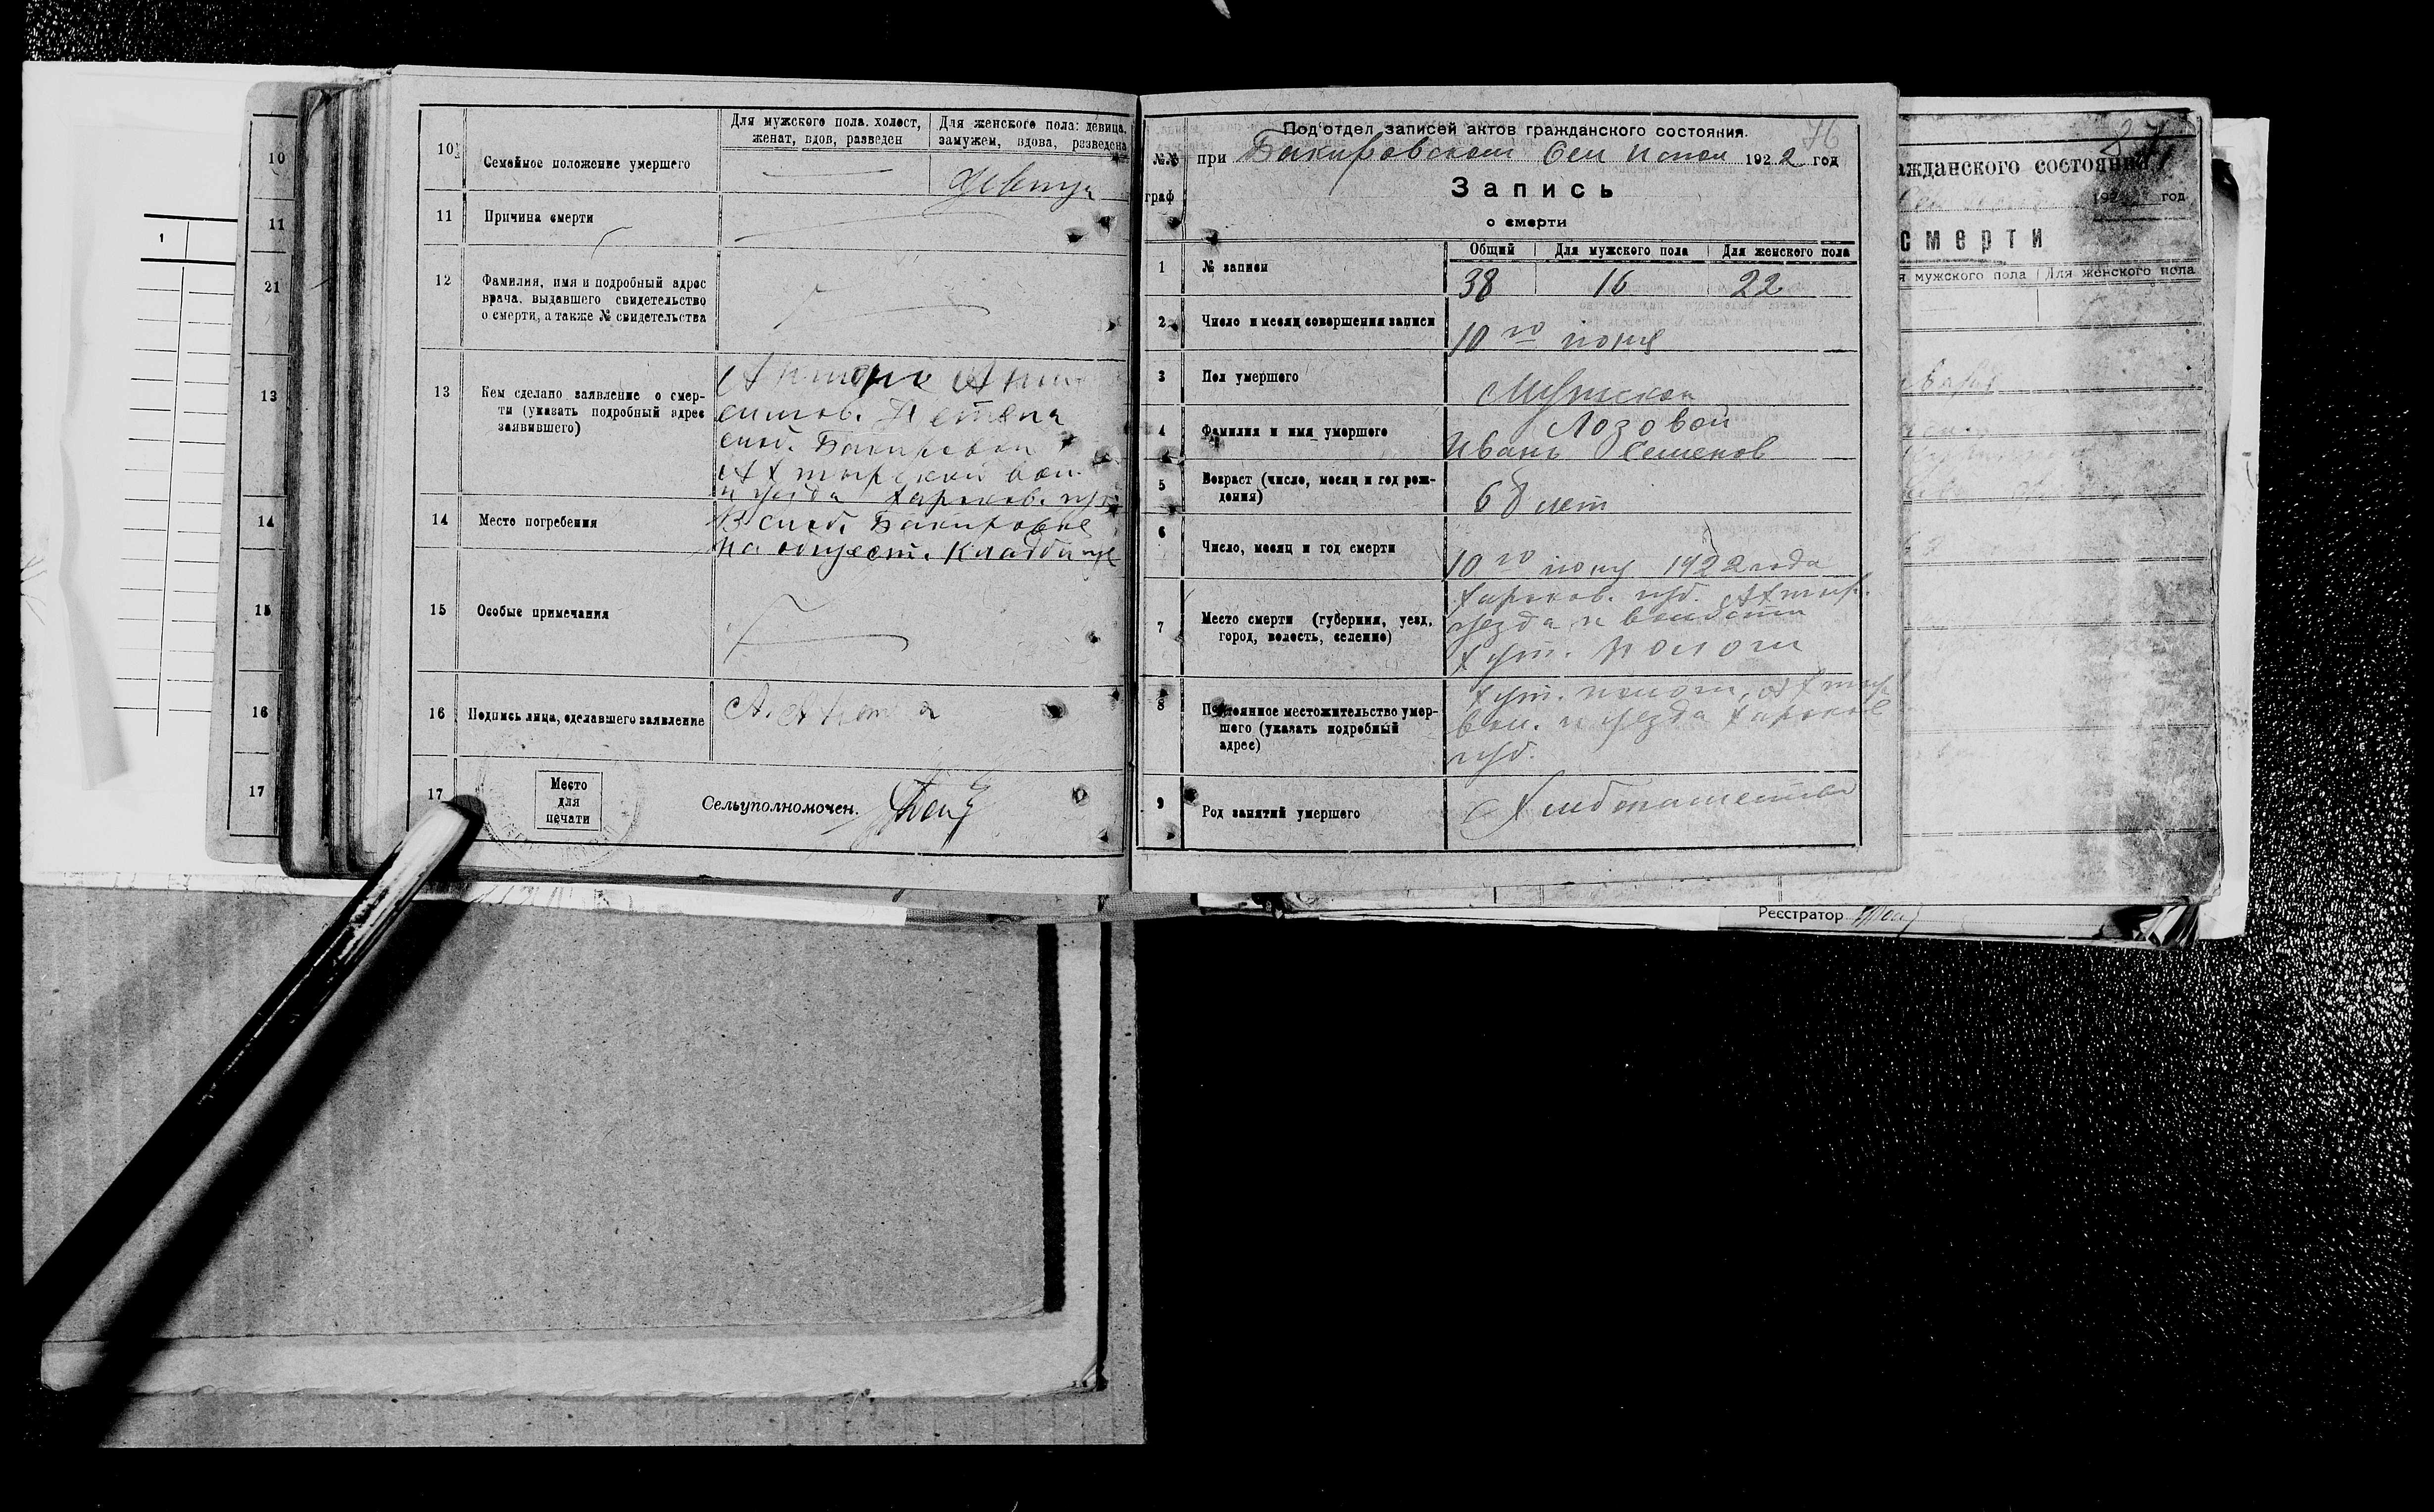 10
11
21
13
14
15
16
17
1
10
Семейное положение умершего
Для мужского пола. холост,
женат, вдов, разведен
Для женского пола: девица,
замужем, вдова, разведена
девица
11
Причина смерти
12
Фамилия, имя и подробный адрес
врача, выдавшего свидетельство
о смерти, а также № свидетельства
13
Кем сделано заявление о смер-
ти (указать подробный адрес
заявившего)
слоб. Бакировки
Ахтырской вол.
и уезда Харьков. губ
14
Место погребения
В слоб. Бакировке
на общест. кладбище
15
Особые примечания
16
Подпись лица, сделавшего заявление
17
Место
для
печати
Сельуполномочен.
76
Под'отдел записей актов гражданского состояния.
№№
граф
при Бакировском Сел Исполк 1922 год
Запись
о смерти
Общий
Для мужского пола
Для женского пола
1
№ записи
38
16
22
2
Число и месяц совершения записи
10го июня
3
Пол умершего
Мужской
4
Фамилия и имя умершего
Лозовой
Иванъ Семенов
5
Возраст (число, месяц и год рож-
дения)
68 лет
6
Число, месяц и год смерти
10го июня 1922 года
7
Место смерти (губерния, уезд,
город, волость, селение)
Харьков. губ. Ахтыр.
уезда и волости
хут. Пологи
8
Постоянное местожительство умер-
шего (указать подробный
адрес)
хут. Пологи, Ахтыр.
вол. и уезда Харьков
губ.
9
Род занятий умершего
Хлебопашество
ажданского состояния
192 год
смерти
я мужского пола
Для женского пола
Реєстратор